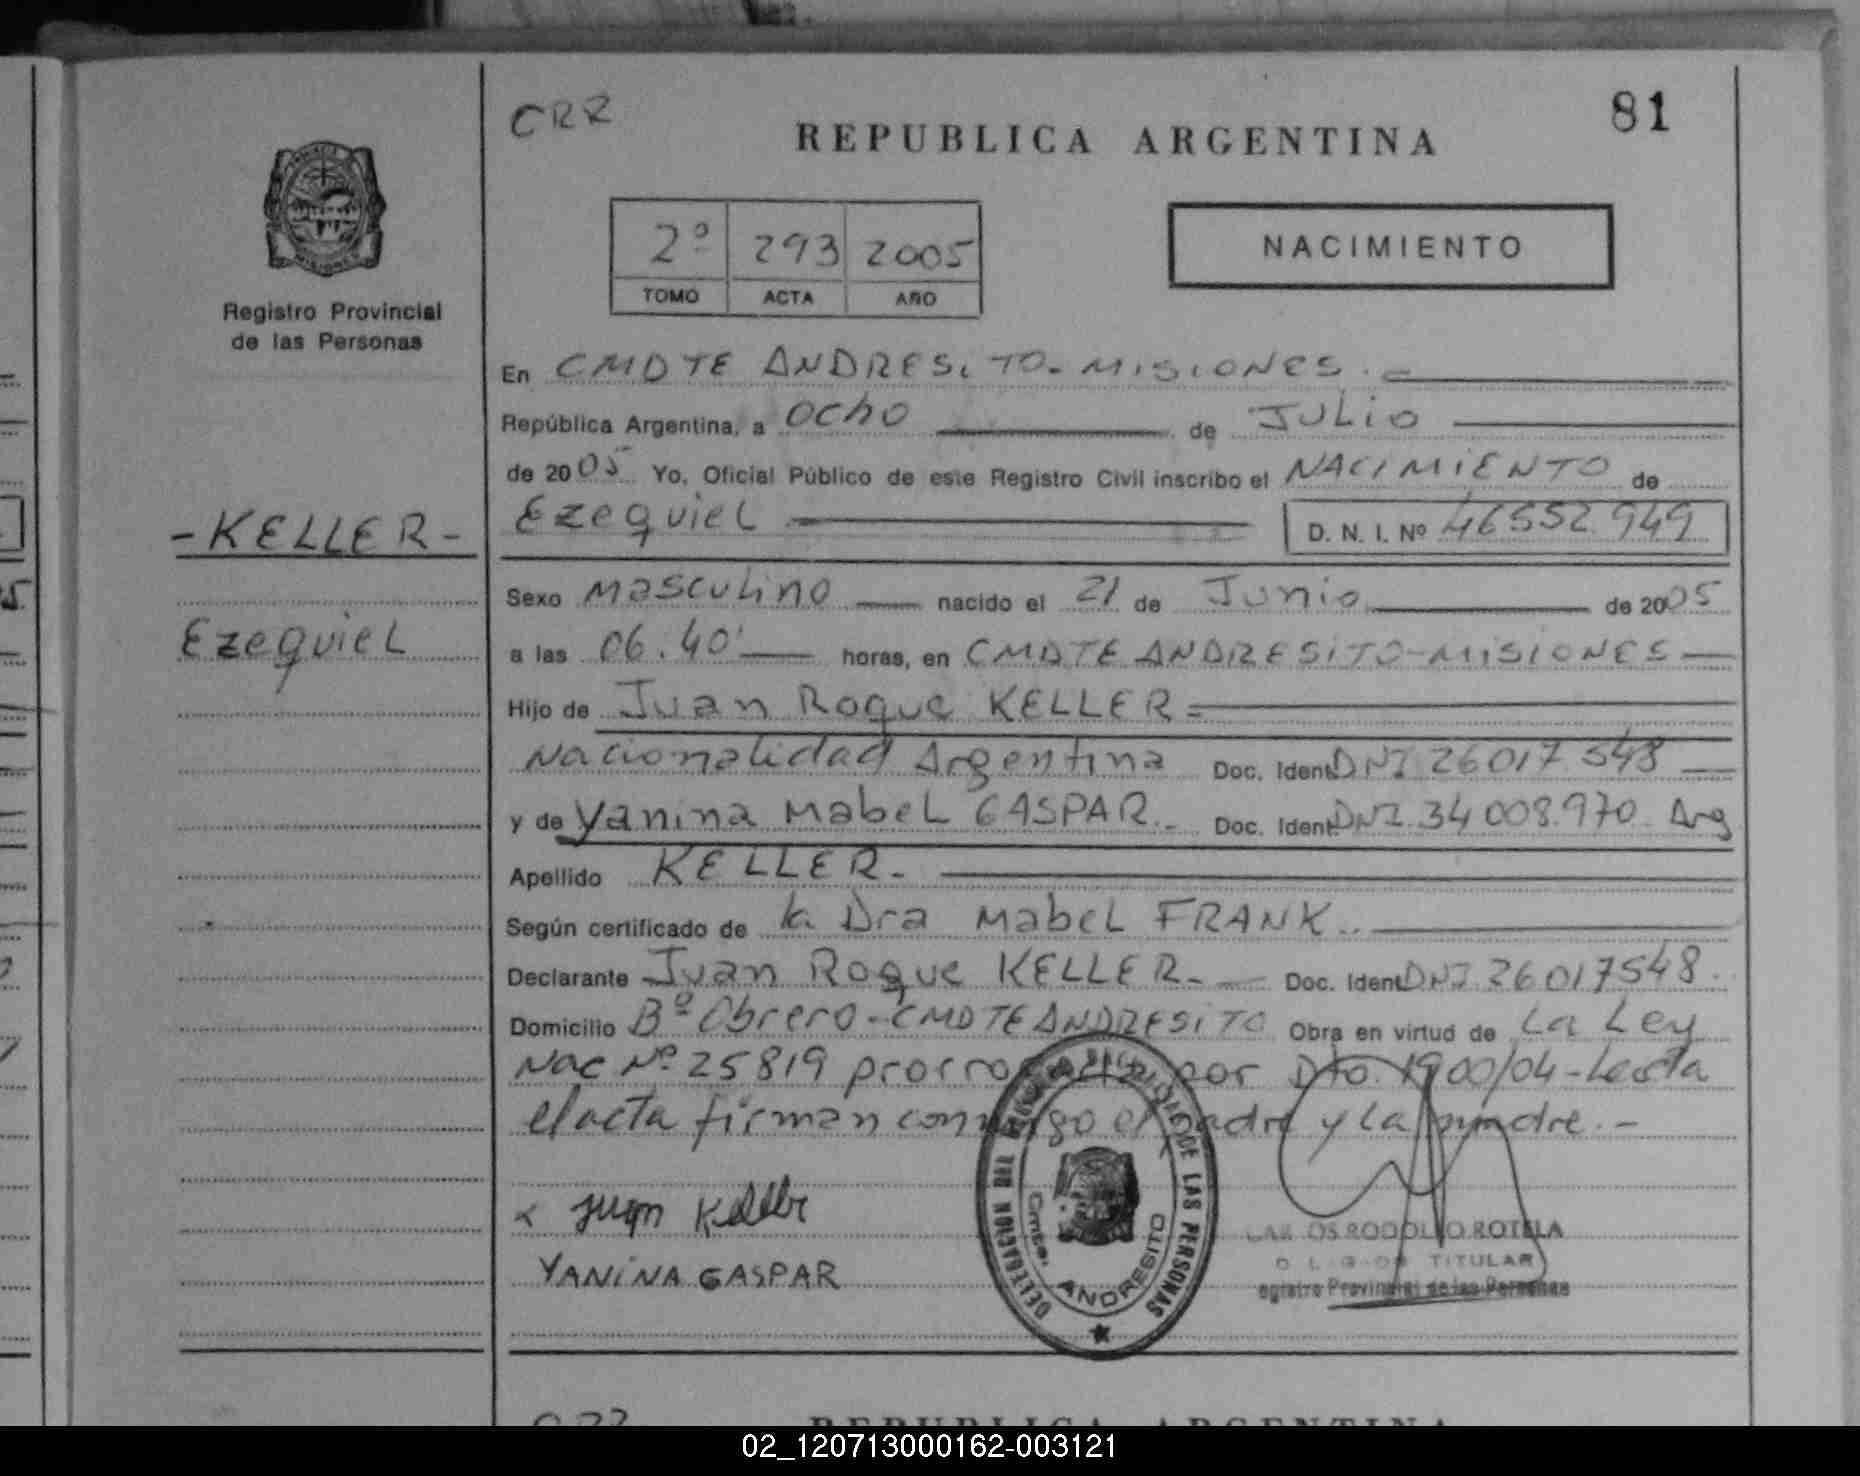 CRR
81
REPUBLICA ARGENTINA
2º 293 2005
TOMO ACTA AÑO
NACIMIENTO
Registro Provincial
de las Personas
En CMDTE ANDRESITO - MISIONES.-
República Argentina, a ocho de JULIO
de 2005 Yo, Oficial Público de este Registro Civil inscribo el NACIMIENTO de
-KELLER-
Ezequiel D. N. I. Nº 46552.949
Sexo masculino nacido el 21 de Junio de 2005
Ezequiel
a las 06.40' horas, en CMDTE ANDRESITO-MISIONES
Hijo de Juan Roque KELLER
Nacionalidad Argentina Doc. Ident DNI 26017.548
y de Yanina Mabel GASPAR.- Doc. Ident DNI 34008.970 Arg
Apellido KELLER.-
Según certificado de la Dra Mabel FRANK..
Declarante Juan Roque KELLER.- Doc. Ident DNI 26017548.
Domicilio Bº Obrero-CMDTE ANDRESITO Obra en virtud de La Ley
Nac Nº 25819 por Dto. 1900/04-
el acta firman conmigo el padre y la madre.-
x Juan Keller
YANINA GASPAR
DELEGACION DEL REGISTRO PROVINCIAL DE LAS PERSONAS
Cmdte. ANDRESITO
RODOLFO ROTELA
TITULAR
Provincial de las Personas
REPUBLICA ARGENTINA
02_120713000162-003121